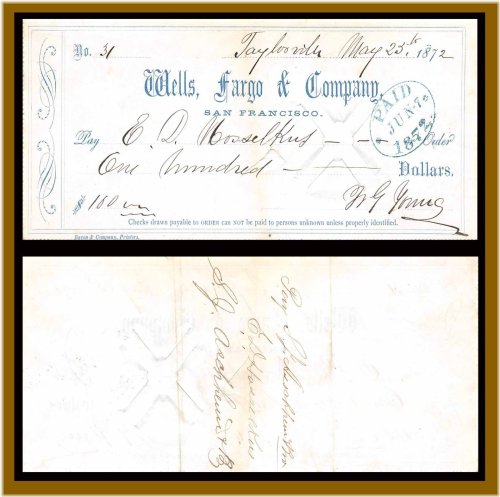 No. 31 Taylorville May 25th 1872
Wells, Fargo & Company,
SAN FRANCISCO.
PAID
JUN 7
1872
Pay E. D. Hosselkus Order
One hundred Dollars.
$ 100 W G Young
Checks drawn payable to ORDER can NOT be paid to persons unknown unless properly identified.
Bacon & Company, Printers.
Pay S. J.
E D Hosselkus
S. J.